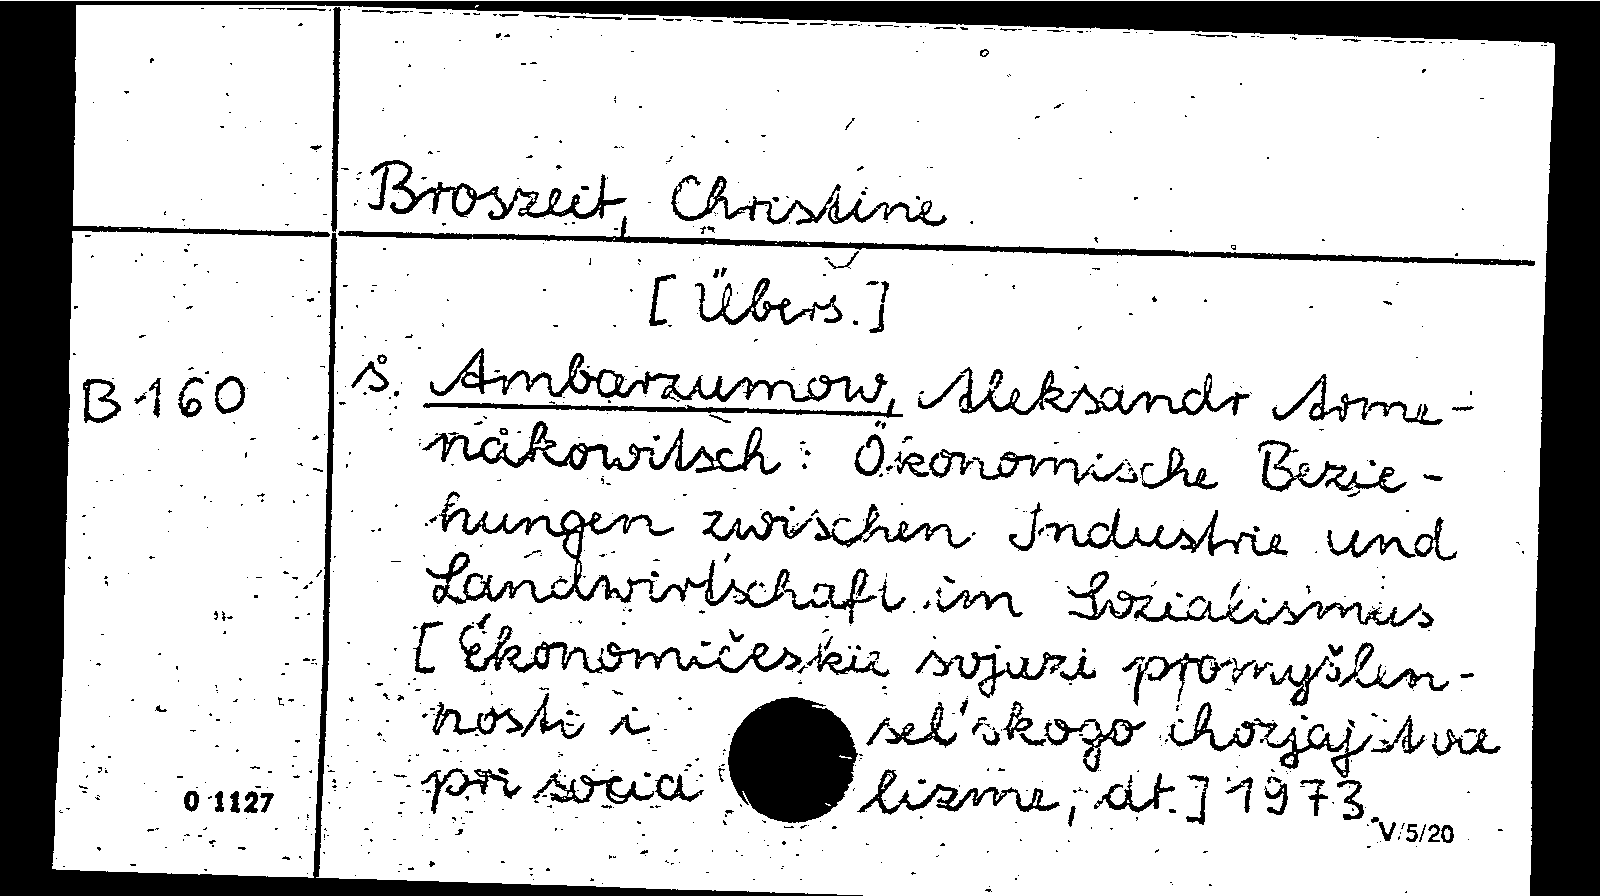 Broszeit, Christine
[Übers.]
B 160 s. Ambarzumow, Aleksandr Arme-
nakowitsch: Ökonomische Bezie-
hungen zwischen Industrie und
Landwirtschaft im Sozialismus
[Ėkonomičeskie svjazi promyšlen-
nosti i sel'skogo chozjajstva
pri socializme, dt.] 1973.
0 1127
V/5/20